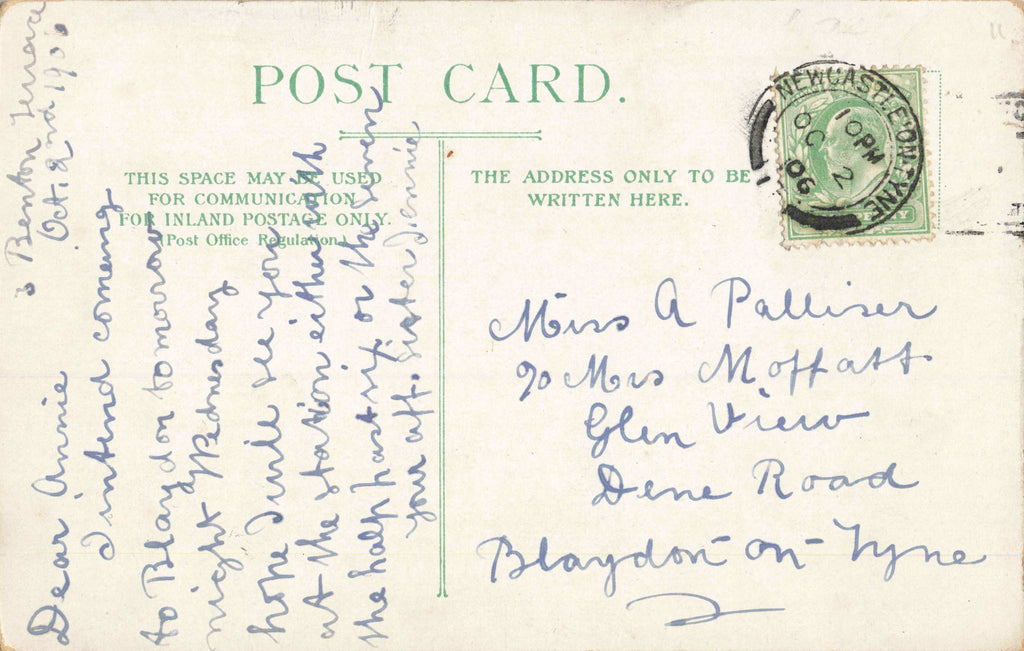 POST CARD.
THIS SPACE MAY BE USED
FOR COMMUNICATION
FOR INLAND POSTAGE ONLY.
(Post Office Regulation)
THE ADDRESS ONLY TO BE
WRITTEN HERE.
NEWCASTLE-ON-TYNE
10 PM
OC 2
06
3 Benton Terrace
Oct. 2nd 1906
Dear Annie
I intend coming
to Blaydon tomorrow
night Wednesday
hope I will see you
at the station either with
the half past six or the seven
your aff. Sister Jennie
Miss A Palliser
c/o Mrs Moffatt
Glen View
Dene Road
Blaydon-on-Tyne